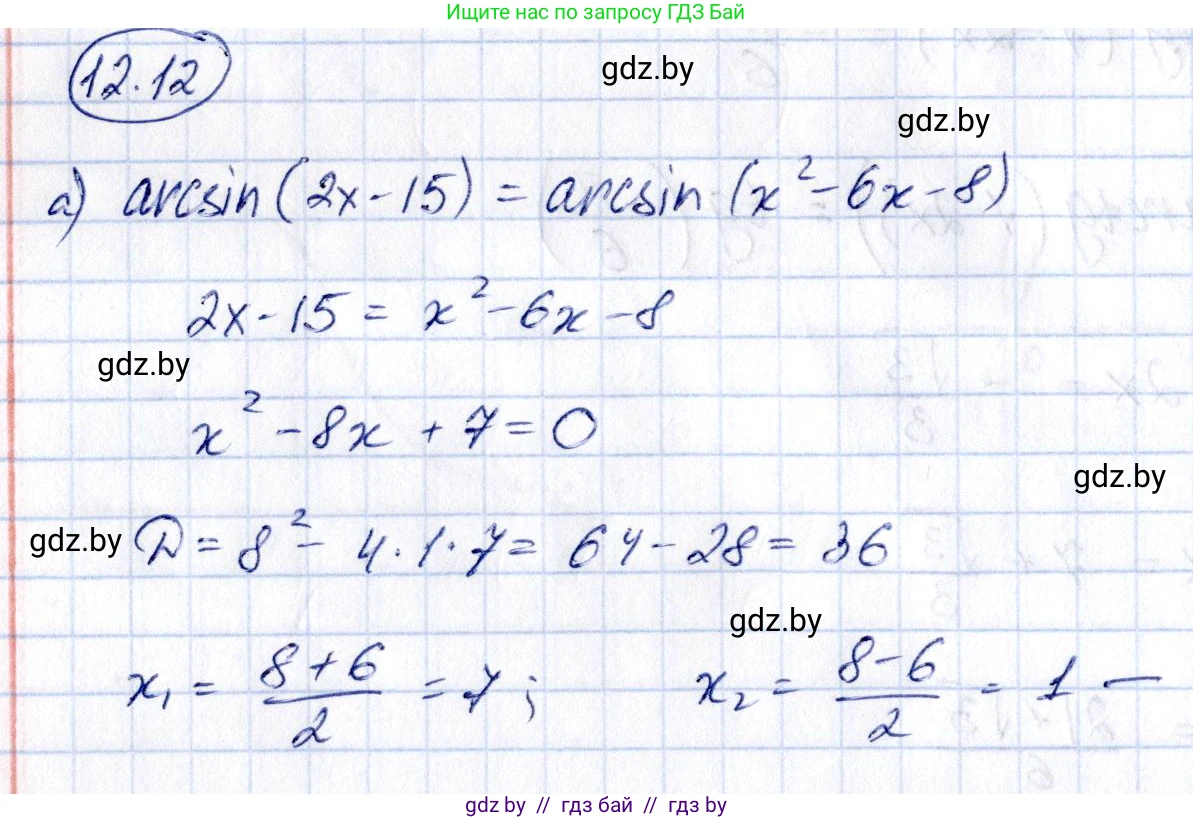 Ищите нас по запросу ГДЗ Бай
12.12
gdz.by
gdz.by
а) arcsin(2x-15) = arcsin(x²-6x-8)
2x-15 = x²-6x-8
gdz.by
x²-8x+7=0
gdz.by
gdz.by
D = 8²-4·1·7 = 64-28 = 36
gdz.by
x₁ = (8+6)/2 = 7; x₂ = (8-6)/2 = 1 —
gdz.by // гдз бай // гдз by